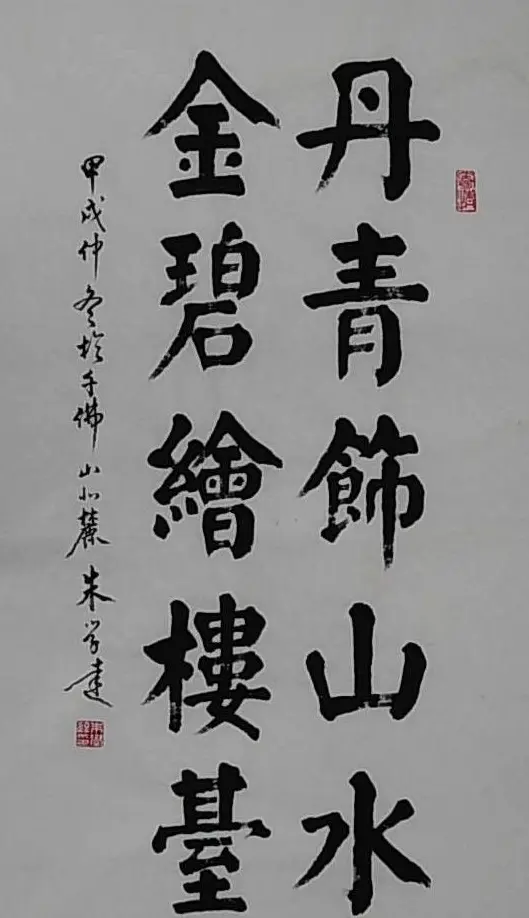 丹青飾山水
金碧繪樓臺
甲戌仲冬於千佛山北麓朱学達